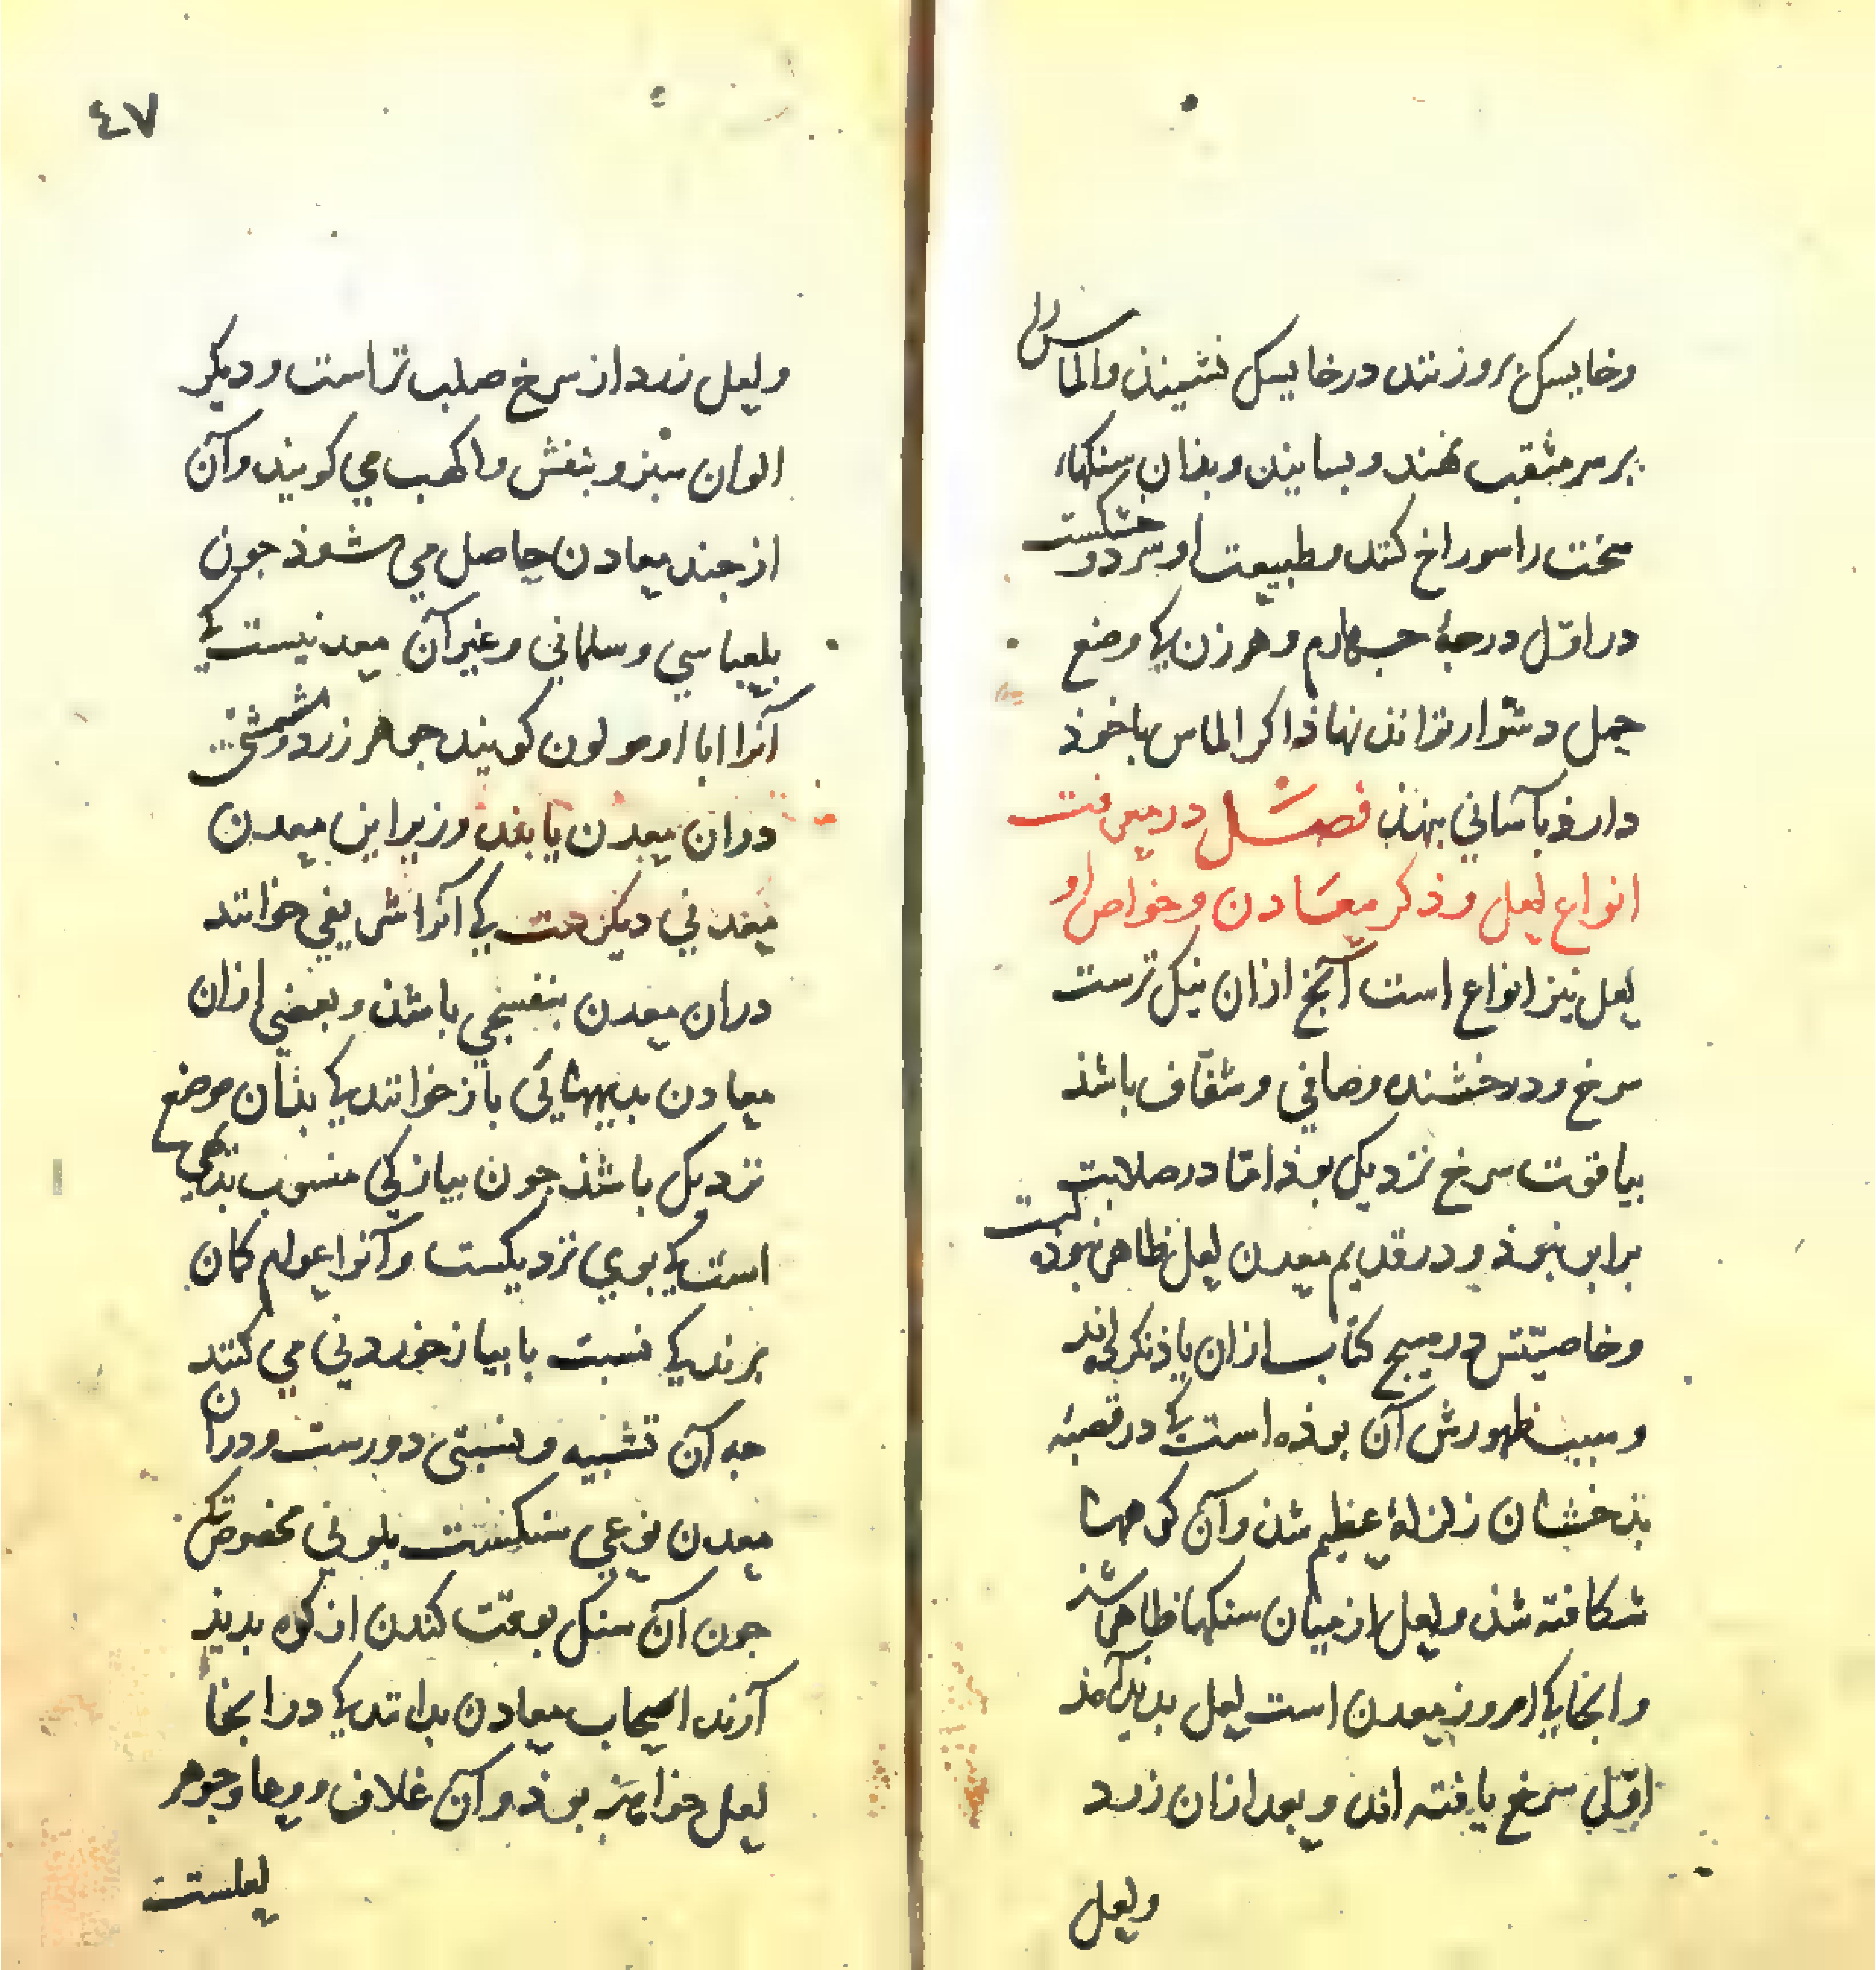 وخایسک بروزنند در خایسک نشیند والماس را
بر سر مثقب نهند و بسایند و بذان سنکهاء
سخت را سوراخ کنند و طبیعت او سرد و خشکست
در اوّل درجهٔ جهارم و هر زن کی وضع
حمل دشوار تواند نهاذ اکر الماس با خوذ
دارذ بآسانی بنهذ فصل در معرفت
انواع لعل و ذکر معادن و خواص او
لعل نیز انواع است آنچ ازان نیک ترست
سرخ و درخشنده و صافی و شفّاف باشذ
بیاقوت سرخ نزدیک بوذ امّا در صلابت
برابر نبوذ و در قدیم معدن لعل ظاهر نبوذه است
و خاصیّتش در هیچ کتاب ازان یاذ نکرده اند
و سبب ظهورش آن بوذه است کی در قصبهٔ
بذخشان زلزلهٔ عظیم شذ و آن کوهها
شکافته شذ و لعل از میان سنکها ظاهر شذ
و انجا کی امروز معدن است لعل بدیذ آمذ
اوّل سرخ یافته اند و بعد ازان زرد
ولعل
٤٧
ولعل زرد از سرخ صلب تر است و دیکر
الوان سبز و بنفش و اکهب می کویند و آن
از جند معادن حاصل می شوذ جون
بلعباسی و سلمانی و غیر آن معدنیست کی
آنرا کویند جواهر زرد
دران معدن یابند و زیر این معدن
معدنی دیکرست کی آنرا شریفی خوانند
دران معدن بنفسجی باشذ و بعضی ازان
معادن بدیههائی باز خوانند کی بذان موضع
نزدیک باشذ جون بیازکی منسوب بدیهی
است کی بوی نزدیکست و آنرا عوام کمان
برند کی نسبت با بیاز خوردنی می کنند
جه آن تشبیه و نسبتی دورست و دران
معدن نوعی سنکست بلونی مخصوص کی
جون آن سنک بوقت کندن از کوه بدیذ
آرند اصحاب معادن بدانند کی در انجا
لعل خواهذ بوذ و آن غلاف و وعا و جوهر
لعلست